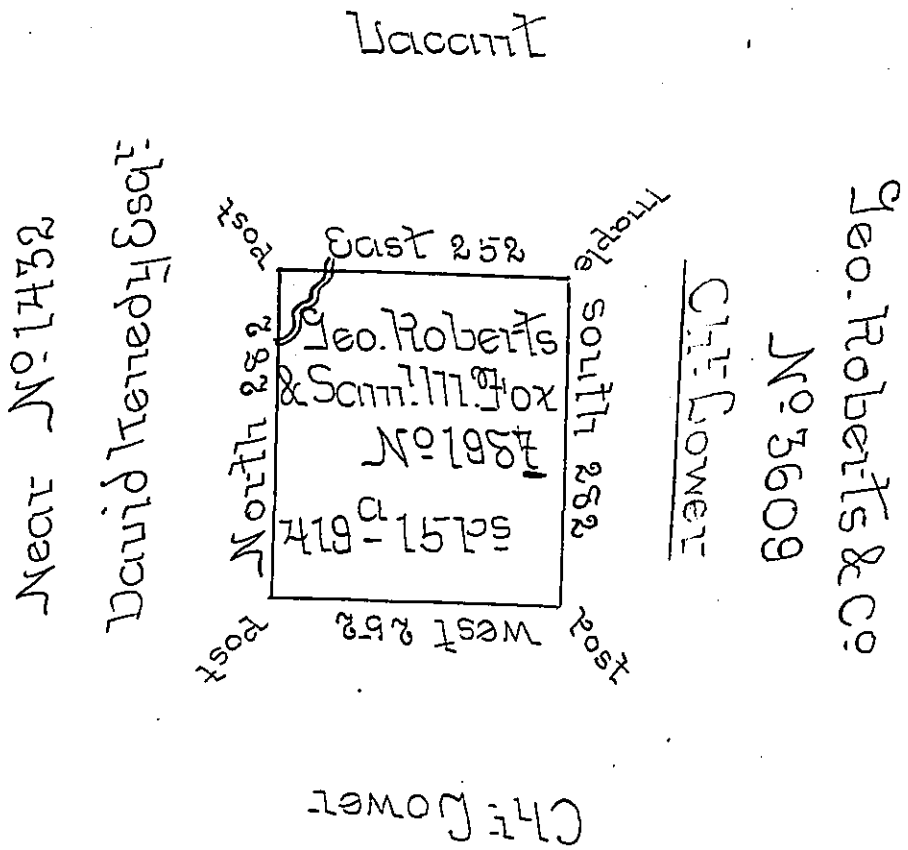 Vacant
Near Nº 1432
David Kenedy Esqr
Post
East 252
maple
North 282
Geo. Roberts
& Saml. M. Fox
Nº 1987
419a-151ps
South 282
West 252
Post
Post
Chr. Gower
Nº 3609
Geo. Roberts & Cº
Chr. Gower